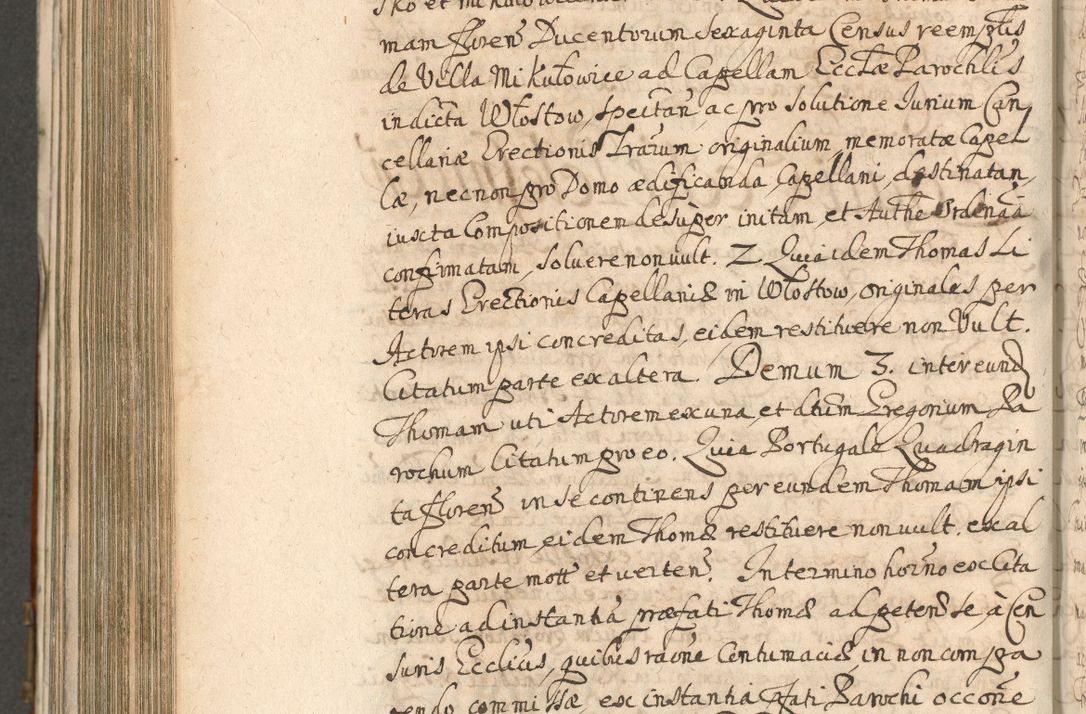 sko et Mikułowice
mam floren Ducentorum sexaginta Census reemptis
de Villa Mikułowice ad Capellam Ecclæ Parochlis
in dicta Włostow, spectan, ac pro solutione Jurium Can
cellariæ Erectionis Lrarum originalium memoratæ Capel
læ, necnon pro Domo ædificanda Capellani, destinatan,
iuxta Compositionem desuper initam, et Authe Ordinaa
confirmatam, solvere non vult. 2. Quia idem Thomas Li
teras Erectionis Capellaniæ in Włostow, originales per
Actorem ipsi concreditas, eidem restituere non Vult.
Citatum parte ex altera. Demum 3. inter eund
Thomam uti Actorem ex una, et dtum Gregorium Pa
rochum Citatum pro eo. Quia Portugale Quadragin
ta floren in se continens per eundem Thomam ipsi
concreditum, eidem Thomæ restituere non vult. ex al
tera parte mott et verten. In termino horno ex Cita
tione ad instantia præfati Thomæ ad peten se, à Cen
suris Ecclicis, quibus raone Contumaciæ in non compa
rendo commissæ, ex instantia pfati Parochi occone